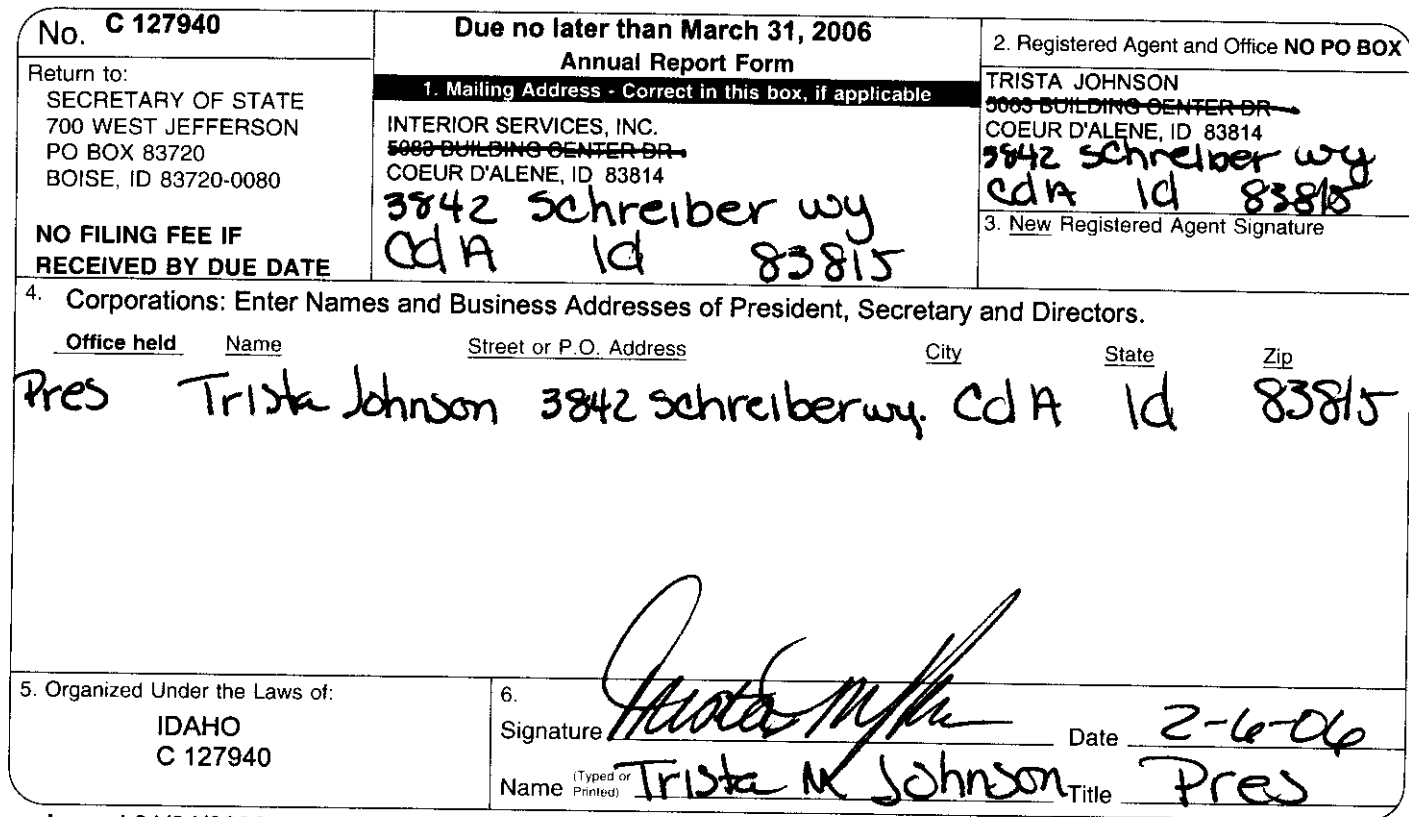 No. C 127940
Return to:
SECRETARY OF STATE
700 WEST JEFFERSON
PO BOX 83720
BOISE, ID 83720-0080
NO FILING FEE IF
RECEIVED BY DUE DATE
Due no later than March 31, 2006
Annual Report Form
1. Mailing Address - Correct in this box, if applicable
INTERIOR SERVICES, INC.
5083 BUILDING CENTER DR
COEUR D'ALENE, ID 83814
3842 Schreiber wy
CdA Id 83815
2. Registered Agent and Office NO PO BOX
TRISTA JOHNSON
5083 BUILDING CENTER DR
COEUR D'ALENE, ID 83814
3842 Schreiber wy
CdA Id 83815
3. New Registered Agent Signature
4. Corporations: Enter Names and Business Addresses of President, Secretary and Directors.
Office held Name Street or P.O. Address City State Zip
Pres Trista Johnson 3842 Schreiber wy. CdA Id 83815
5. Organized Under the Laws of:
IDAHO
C 127940
6.
Signature Date 2-6-06
Name (Typed or Printed) Trista M Johnson Title Pres